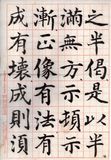 之半偈是以半
滿無方示頓示
漸正像有法有
成有壞成則須